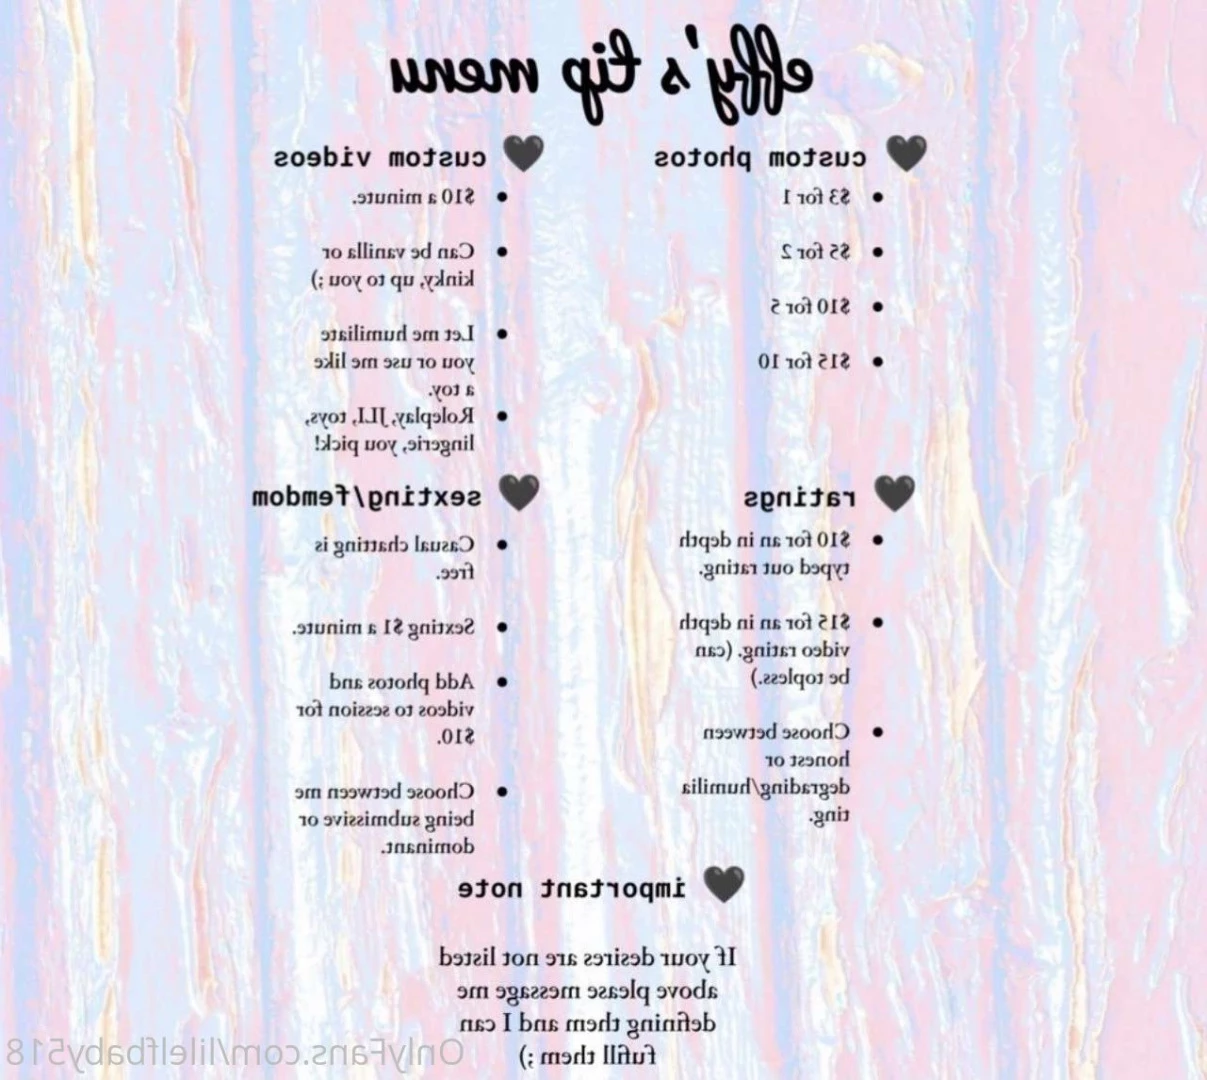 effy's tip menu
custom photos
$3 for 1
$5 for 2
$10 for 5
$15 for 10
custom videos
$10 a minute.
Can be vanilla or
kinky, up to you ;)
Let me humiliate
you or use me like
a toy.
Roleplay, toys,
lingerie, you pick!
ratings
$10 for an in depth
typed out rating.
$15 for an in depth
video rating. (can
be topless.)
Choose between
honest or
degrading/humilia
ting.
sexting/femdom
Casual chatting is
free.
Sexting $1 a minute.
Add photos and
videos to session for
$10.
Choose between me
being submissive or
dominant.
important note
If your desires are not listed
above please message me
defining them and I can
fufill them ;)
OnlyFans.com/lilelfbaby518